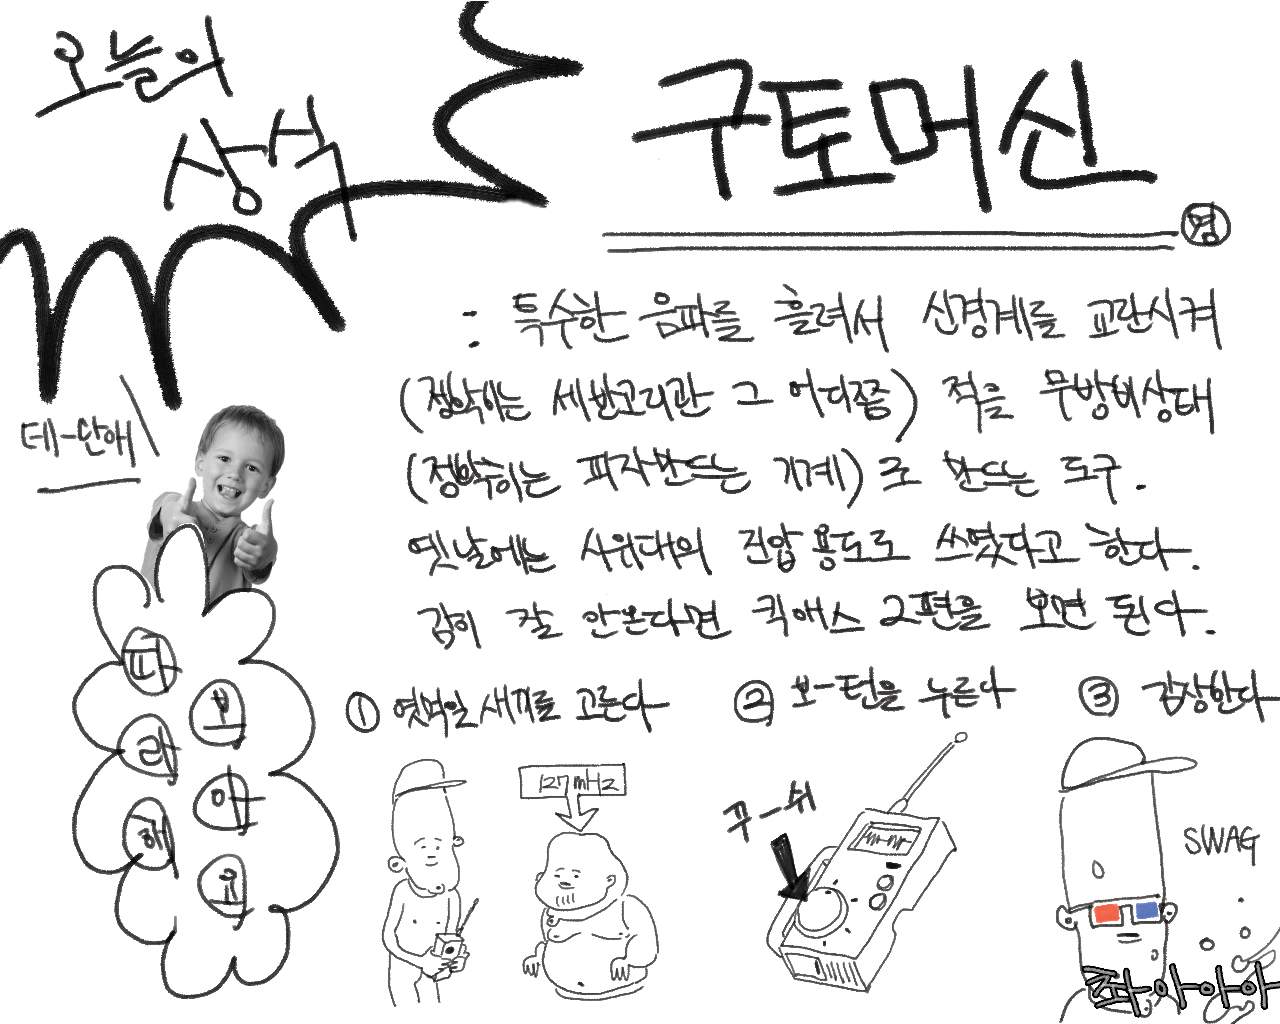 오늘의
상식
구토머신
명
: 특수한 음파를 흘려서 신경계를 교란시켜
(정확히는 세반고리관 그 어디쯤) 적을 무방비상태
(정확히는 피자만드는 기계)로 만드는 도구.
옛날에는 시위대의 진압용도로 쓰였다고 한다.
감히 잘 안온다면 킥애스 2편을 보면 된다.
데-단해
파
보
라
아
해
요
① 엿먹일 새끼를 고른다
② 보-턴을 누른다
③ 감상한다
127mHz
꾸-쉬
SWAG
좌아아아